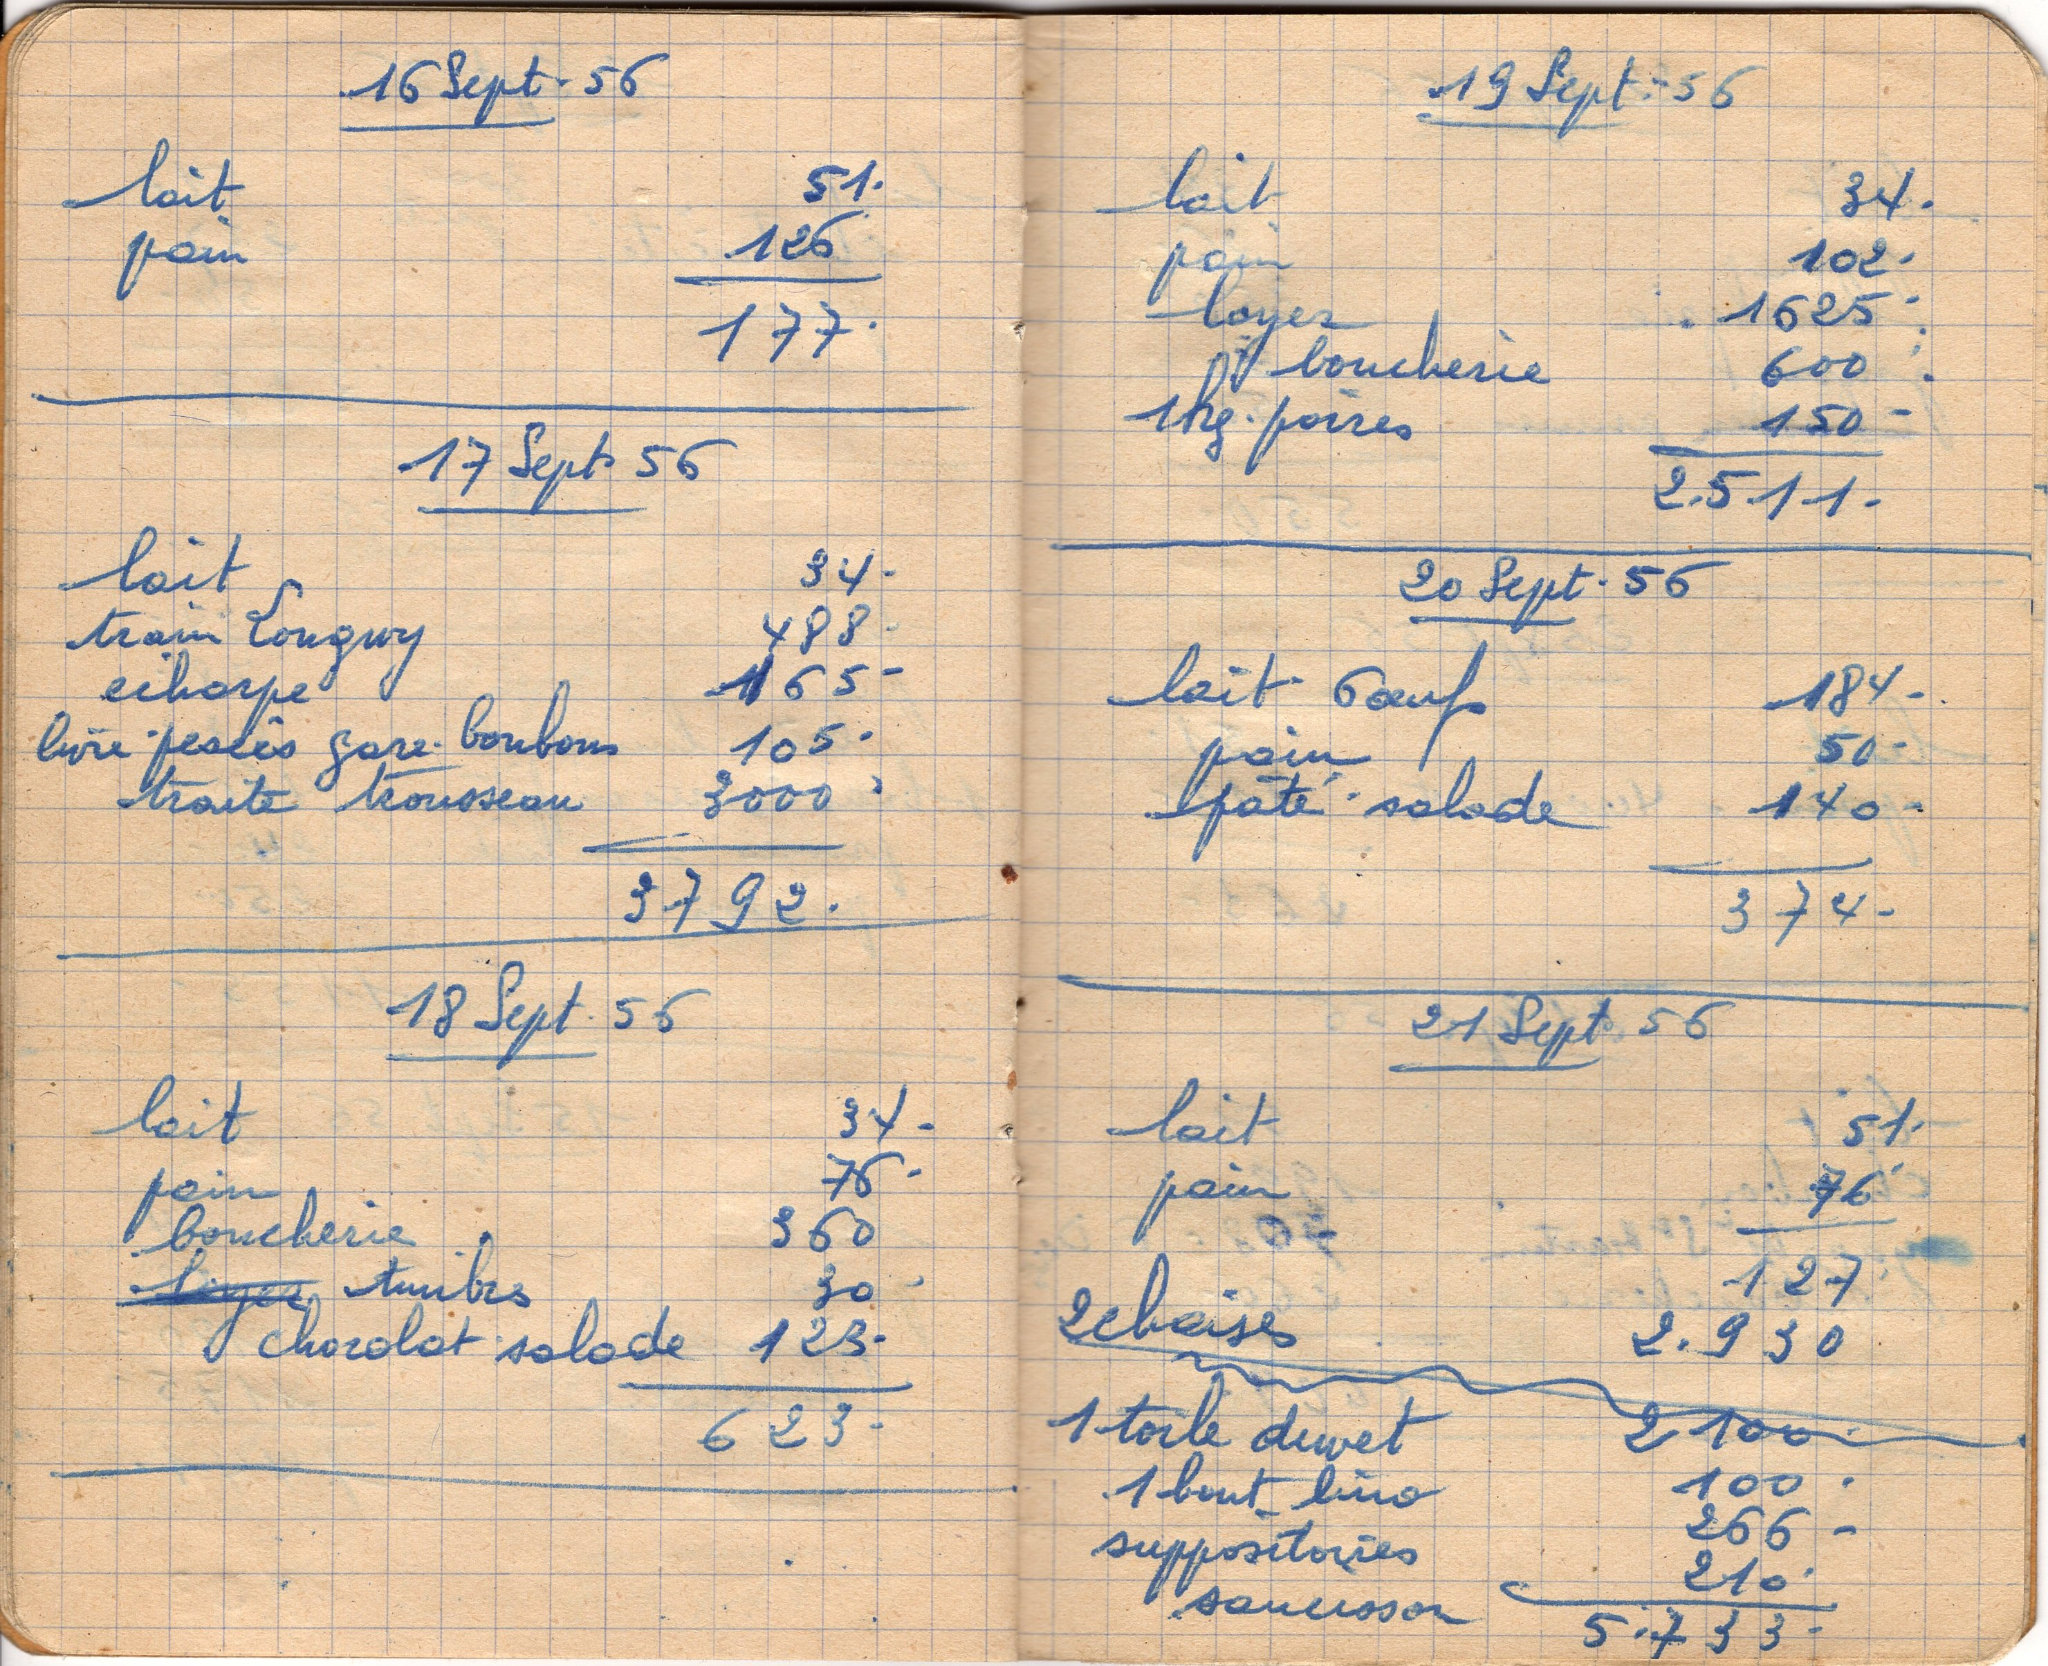 16 Sept. 56
lait 51.
pain 126
177.
17 Sept. 56
lait 34-
train Longwy 488-
echarpe 165-
livre pesées gare. bonbons 105-
traite trousseau 3000
3792.
18 Sept. 56
lait 34-
pain 76-
boucherie 360
loyer timbres 30-
chocolat salade 123-
623-
19 Sept. 56
lait 34.
pain 102.
loyer 1625-
boucherie 600
1kg. poires 150-
2.511-
20 Sept. 56
lait 6 œufs 184-
pain 50-
pâté. salade 140-
374-
21 Sept. 56
lait 51.
pain 76
127
2 chaises 2.930
1 toile duvet 2100
1 bout lino 100.
suppositoires 266-
saucisson 210
5.733-